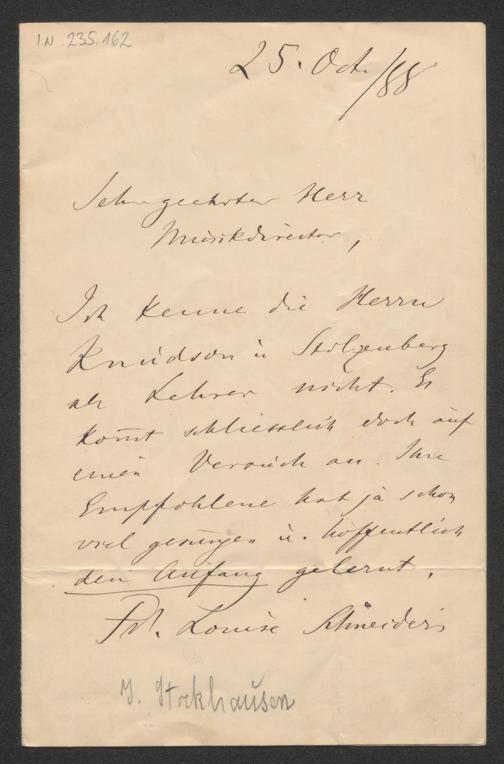 IN. 235.162
25. Oct. /88
Sehr geehrter Herr
Musikdirector,
Ich kenne die Herrn
Knudson u Stolzenberg
als Lehrer nicht. Es
kom̅t schliesslich doch auf
einen Versuch an. Ihre
Empfohlene hat ja schon
viel gesungen u. hoffentlich
den Anfang gelernt.
Frl. Louise Schneider's
J. Stockhausen